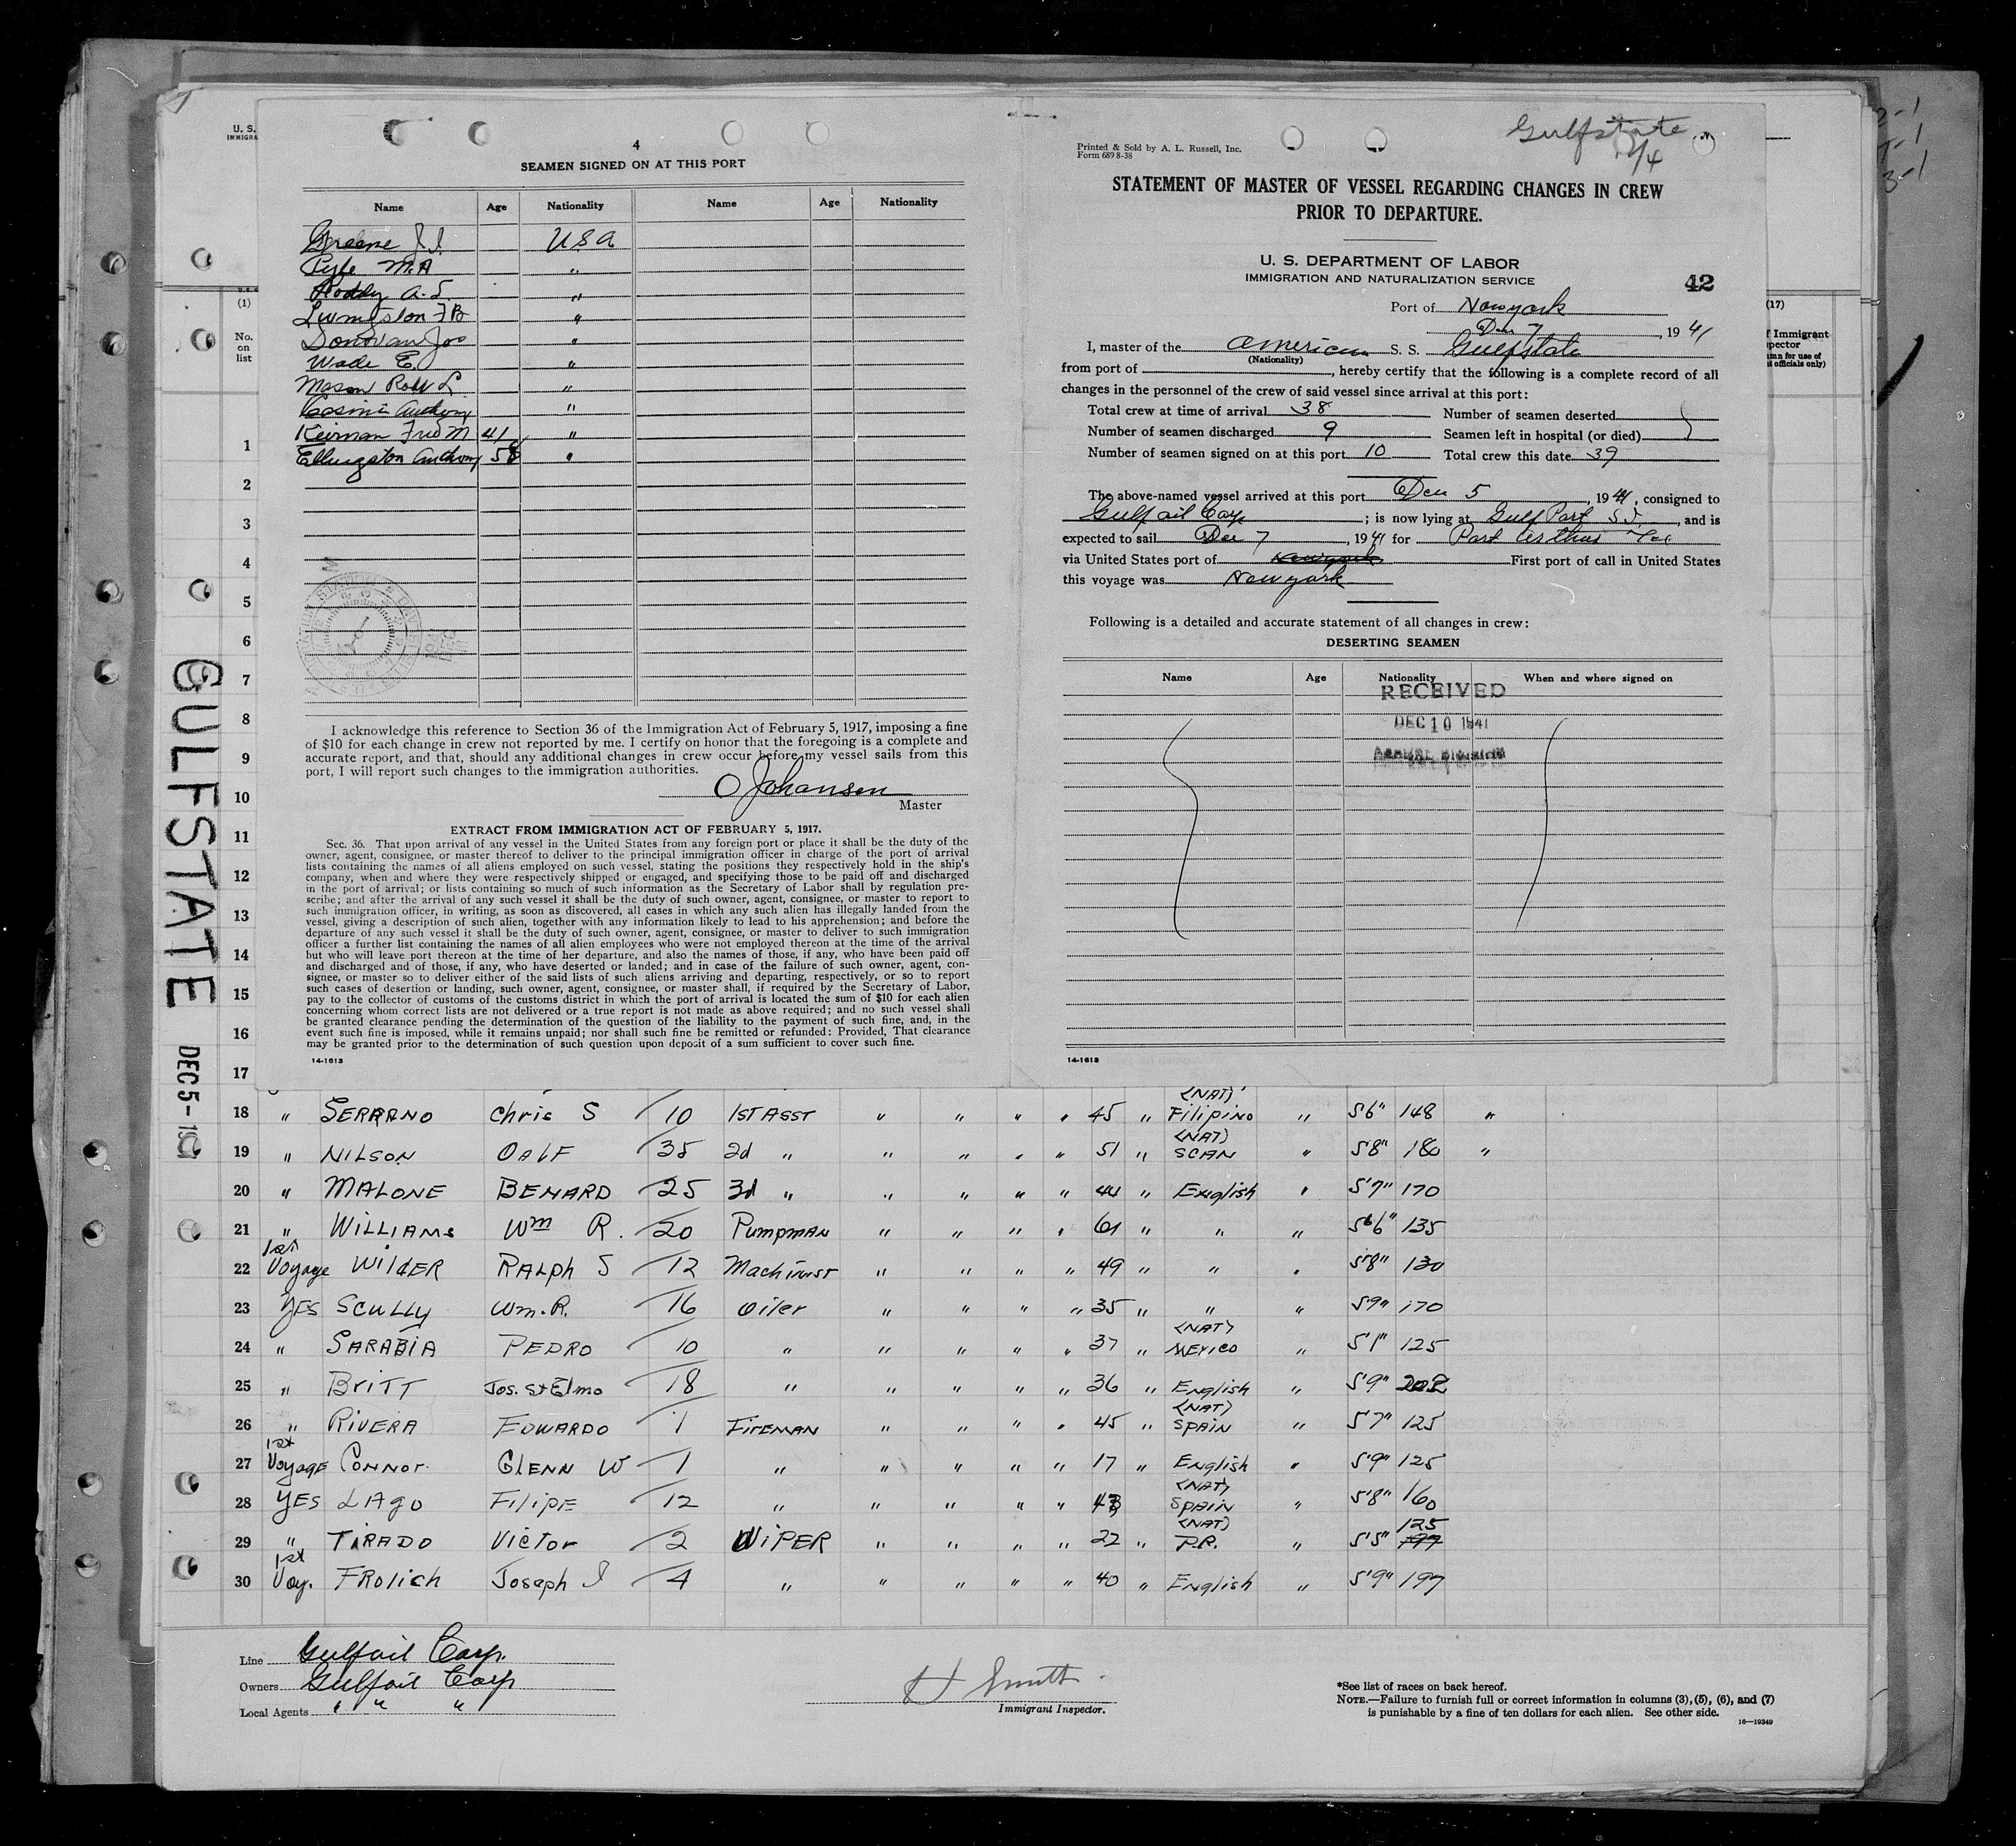 U. S.
IMMIGRA
(1)
No.
on
list
1
2
3
4
5
6
7
8
9
10
11
12
13
14
15
16
17
GULFSTATE DEC 5-19
4
SEAMEN SIGNED ON AT THIS PORT
Name Age Nationality Name Age Nationality
Greene J.J. USA
Pyle M.A "
Roddy A.S. "
Livingston F B "
Donovan Jos "
Wade E. "
Mason Robt L "
Cosmi Anthony "
Keirnan Fred M 41 "
Ellingston Anthony 58 "
I acknowledge this reference to Section 36 of the Immigration Act of February 5, 1917, imposing a fine
of $10 for each change in crew not reported by me. I certify on honor that the foregoing is a complete and
accurate report, and that, should any additional changes in crew occur before my vessel sails from this
port, I will report such changes to the immigration authorities.
O Johansen
Master
EXTRACT FROM IMMIGRATION ACT OF FEBRUARY 5, 1917.
Sec. 36. That upon arrival of any vessel in the United States from any foreign port or place it shall be the duty of the
owner, agent, consignee, or master thereof to deliver to the principal immigration officer in charge of the port of arrival
lists containing the names of all aliens employed on such vessel, stating the positions they respectively hold in the ship's
company, when and where they were respectively shipped or engaged, and specifying those to be paid off and discharged
in the port of arrival; or lists containing so much of such information as the Secretary of Labor shall by regulation pre-
scribe; and after the arrival of any such vessel it shall be the duty of such owner, agent, consignee, or master to report to
such immigration officer, in writing, as soon as discovered, all cases in which any such alien has illegally landed from the
vessel, giving a description of such alien, together with any information likely to lead to his apprehension; and before the
departure of any such vessel it shall be the duty of such owner, agent, consignee, or master to deliver to such immigration
officer a further list containing the names of all alien employees who were not employed thereon at the time of the arrival
but who will leave port thereon at the time of her departure, and also the names of those, if any, who have been paid off
and discharged and of those, if any, who have deserted or landed; and in case of the failure of such owner, agent, con-
signee, or master so to deliver either of the said lists of such aliens arriving and departing, respectively, or so to report
such cases of desertion or landing, such owner, agent, consignee, or master shall, if required by the Secretary of Labor,
pay to the collector of customs of the customs district in which the port of arrival is located the sum of $10 for each alien
concerning whom correct lists are not delivered or a true report is not made as above required; and no such vessel shall
be granted clearance pending the determination of the question of the liability to the payment of such fine, and, in the
event such fine is imposed, while it remains unpaid; nor shall such fine be remitted or refunded: Provided, That clearance
may be granted prior to the determination of such question upon deposit of a sum sufficient to cover such fine.
14-1613
Gulfstate
12/4
Printed & Sold by A. L. Russell, Inc.
Form 689 8-38
STATEMENT OF MASTER OF VESSEL REGARDING CHANGES IN CREW
PRIOR TO DEPARTURE.
U. S. DEPARTMENT OF LABOR
IMMIGRATION AND NATURALIZATION SERVICE
42
Port of New york
Dec 7, 1941
I, master of the American S. S. Gulfstate
(Nationality)
from port of , hereby certify that the following is a complete record of all
changes in the personnel of the crew of said vessel since arrival at this port:
Total crew at time of arrival 38 Number of seamen deserted
Number of seamen discharged 9 Seamen left in hospital (or died)
Number of seamen signed on at this port 10 Total crew this date 39
The above-named vessel arrived at this port Dec 5, 1941, consigned to
Gulf oil Corp ; is now lying at Gulf Port S.I., and is
expected to sail Dec 7, 1941 for Port Arthur Tex
via United States port of New york First port of call in United States
this voyage was New york
Following is a detailed and accurate statement of all changes in crew:
DESERTING SEAMEN
Name Age Nationality When and where signed on
RECEIVED
DEC 10 1941
14-1613
(17)
f Immigrant
pector
mn for use of
t officials only)
18 " SERRANO Chris S 10 1ST ASST " " " " 45 " (NAT) Filipino " 5'6" 148 "
19 " NILSON OALF 35 2d " " " " " 51 " (NAT) SCAN " 5'8" 180 "
20 " MALONE BENARD 25 3d " " " " " 44 " English " 5'7" 170
21 " WILLIAMS Wm R. 20 PUMPMAN " " " " 61 " " " 5'6" 135
22 1st Voyage WILdER RALPh S 12 Machinist " " " " 49 " " " 5'8" 130
23 YES SCULLY Wm. R. 16 Oiler " " " " 35 " " " 5'9" 170
24 " SARABIA PEDRO 10 " " " " " 37 " (NAT) MEXICO " 5'1" 125
25 " BRITT Jos. St Elmo 18 " " " " " 36 " English " 5'9" 202
26 " RIVERA EDWARDO 1 FIREMAN " " " " 45 " (NAT) SPAIN " 5'7" 125
27 1st Voyage CONNOr. GLENN W 1 " " " " " 17 " English " 5'9" 125
28 YES LAGO FILIPE 12 " " " " " 43 " (NAT) SPAIN " 5'8" 160
29 " TIRADO Victor 2 WIPER " " " " 22 " (NAT) P.R. " 5'5" 125
30 1st Voy. FROLICH Joseph J 4 " " " " " 40 " English " 5'9" 197
Line Gulf oil Corp.
Owners Gulf oil Corp
Local Agents " " "
H Smith
Immigrant Inspector.
*See list of races on back hereof.
NOTE.—Failure to furnish full or correct information in columns (3), (5), (6), and (7)
is punishable by a fine of ten dollars for each alien. See other side.
16—19349